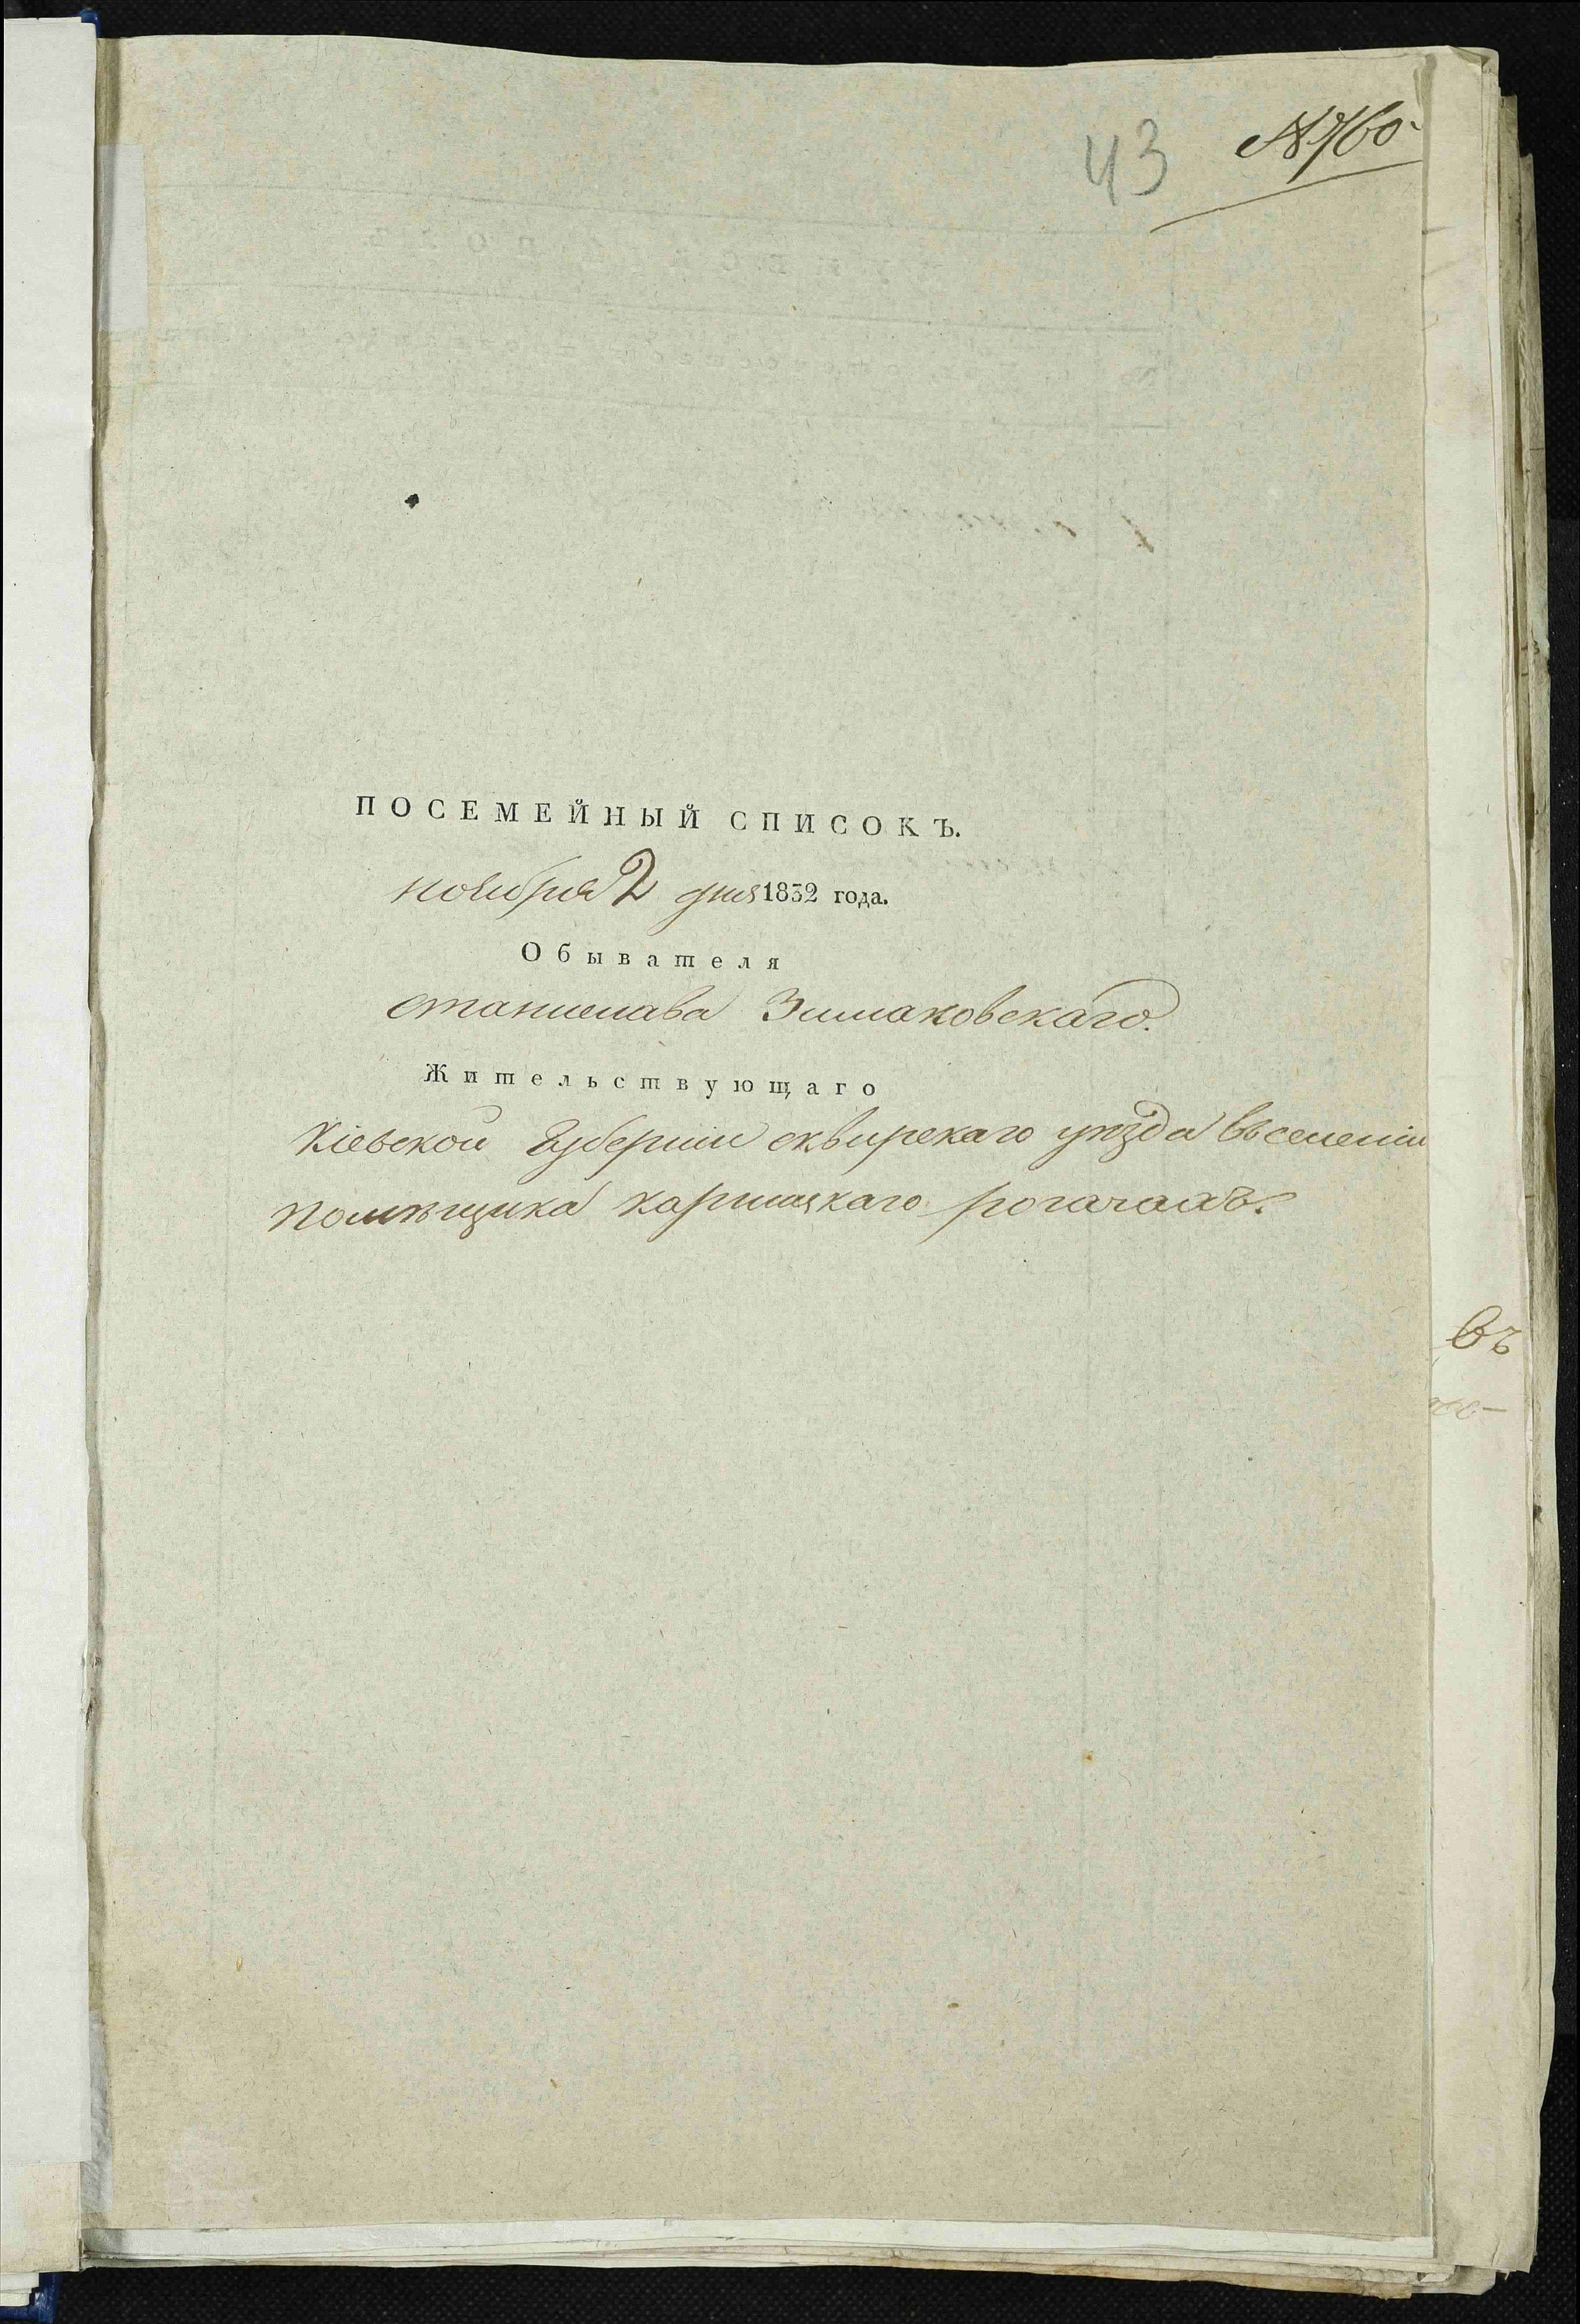 43 №760
ПОСЕМЕЙНЫЙ СПИСОКЪ.
ноября 2 дня 1832 года.
Обывателя
станислава Зимаковскаго.
Жительствующаго
Кіевской Губерніи сквирскаго уѣзда въ селеніи
помѣщика рогачахъ.
въ